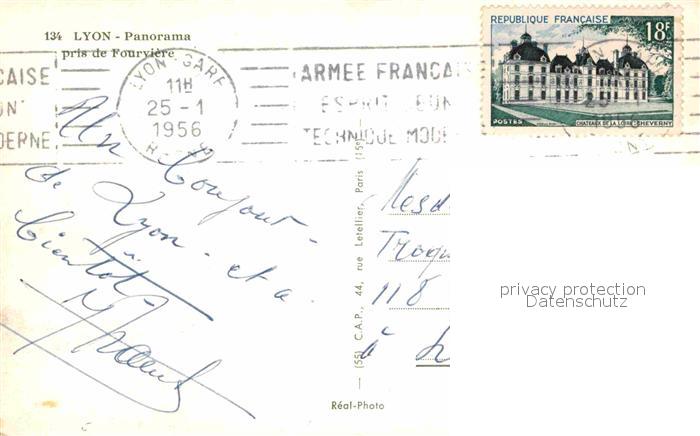 134 LYON - Panorama
pris de Fourvière
LYON GARE
11H
25-1
1956
RHONE
ÇAISE
UN
DERNE
ARMEE FRANÇAI
ESPRIT JEUN
TECHNIQUE MODE
REPUBLIQUE FRANÇAISE
18F
POSTES
CHATEAUX DE LA LOIRE-CHEVERNY
Un bonjour
de Lyon - et a
bientôt
Mesd
118
à
(55) C.A.P., 44, rue Letellier, Paris (15e)
Réal-Photo
privacy protection
Datenschutz